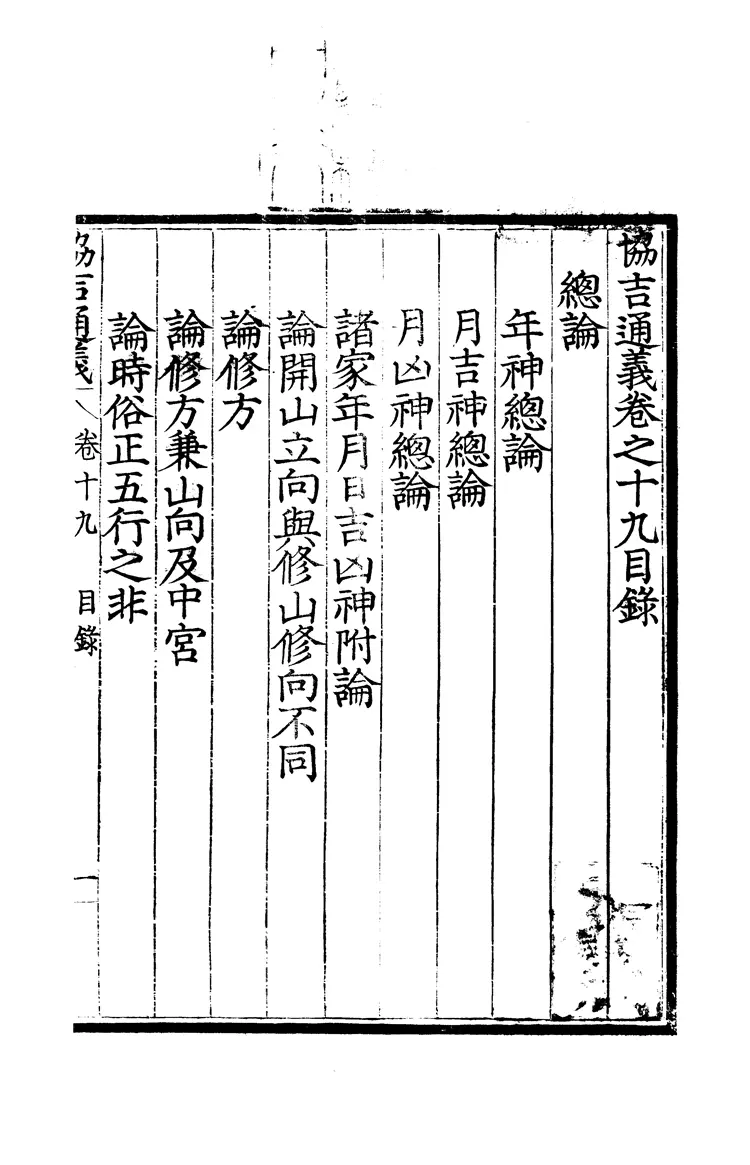 協吉通義卷之十九目錄
總論
年神總論
月吉神總論
月凶神總論
諸家年月日吉凶神附論
論開山立向與修山修向不同
論修方
論修方兼山向及中宮
論時俗正五行之非
協吉通義 卷十九 目錄 一